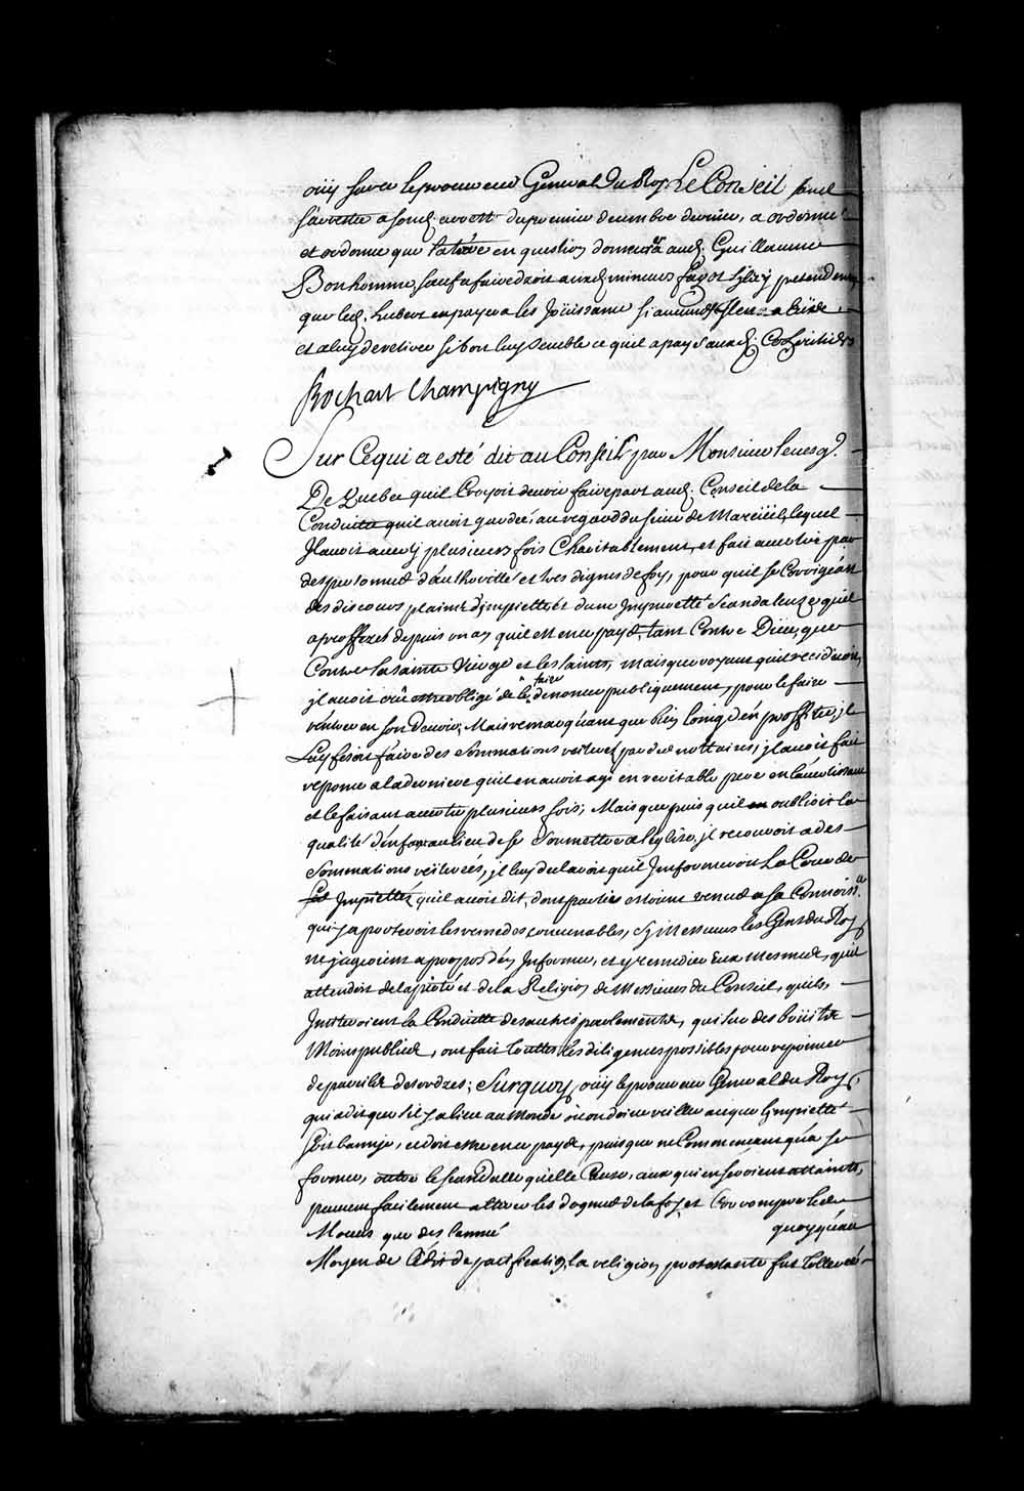 ouy sur ce le procureur General du Roy Le Conseil
a son d. arrest du premier decembre dernier, a ordonné
et ordonne que la terre en question demeurera aud. Guillaume
Bonhomme, sauf a faire droit ausd. mineurs
que led. Hubert en payera les joüissances si aucunes
et a luy de retirer si bon luy semble ce qu'il a payé ausd. Cohéritiers
Rochart Champigny
Sur Ce qui a esté dit au Conseil par Monsieur levesq.
De Quebec quil Croyoit devoir faire part aud. Conseil de la
Conduitte quil avoit gardée, au regard du sieur de Mareüil, lequel
Il avoit averty plusieurs fois Charitablement, et fait avertir par
des personnes d'authorité et tres dignes de foy, pour quil se Corrigeast
des discours plains d'impietté, et d'une Impureté Scandaleuze quil
a proferez depuis un an quil est en ce pays, tant Contre Dieu, que
Contre la sainte Vierge et les saints, mais que voyant
il avoit crû estre obligé de le faire denoncer publiquement, pour le faire
rentrer en son Devoir, Mais remarquant que bien loing d'en proffiter, il
Luy faisoit faire des Sommations reiterées par des nottaires, il avoit fait
reponce a la derniere quil en avoit agi en veritable pere en l'avertissant
et le faisant avertir plusieurs fois; Mais que puis quil oublioit la
qualité d'enfant au lieu de se Soumettre a l'eglise, il recouroit a des
Sommations reiterées, il luy declaroit quil Informeroit La Cour des
Impiettés quil avoit dit, dont partie estoient venues a sa Connoiss.ce
qui y aporteroit les remedes convenables, Sy Messieurs les Gens du Roy
ne jugeoient a propos d'en Informer, et y remedier Eux mesmes, quil
attendoit de la pieté et de la Religion de Messieurs du Conseil, quils,
Imiteroient la Conduitte des autres parlements, qui sur des bruits
Moins publics, ont fait touttes les diligences possibles pour reprimer
de pareils desordres; Surquoy, ouy le procureur General du Roy,
qui a dit que s'il y a lieu au Monde où on doive veiller a ce que l'impietté
soit bannie, ce doit estre en ce pays, puisque ne Commenceant qu'a se
former, outre le scandalle qu'elle Cause, ceux qui en seroient attaints,
peuvent facilement alterer les dogmes de la foy, et Corrompre les
Moeurs quoyqu'au
Moyen de l'Edit de pacification, la religion protestante fut Tollerée